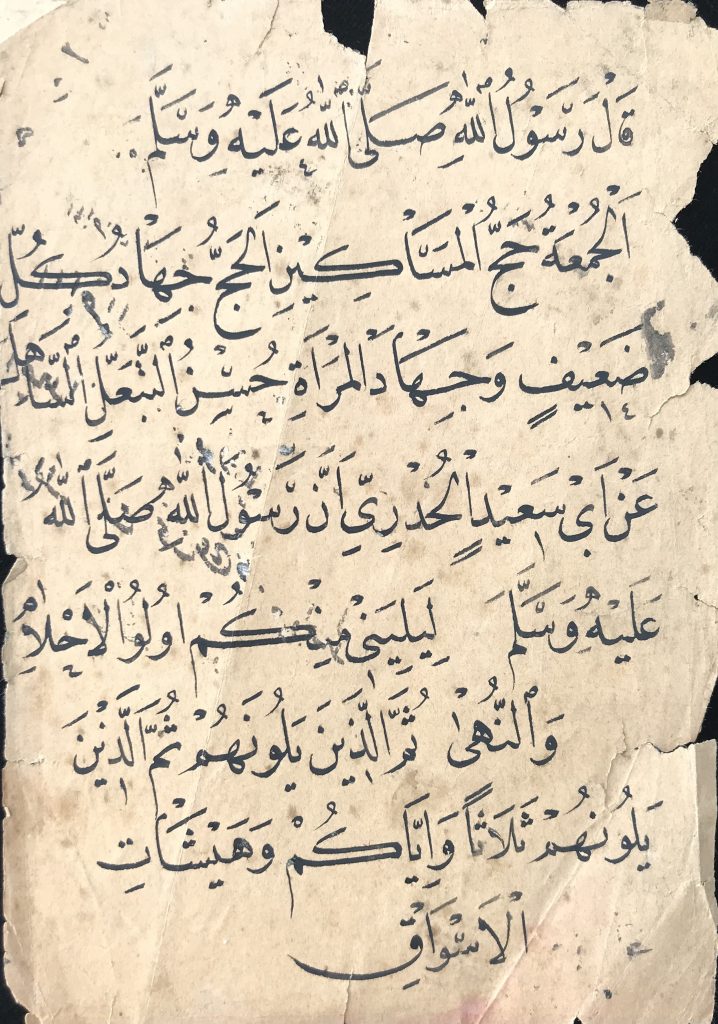 قَالَ رَسُولُ اللهِ صَلَّى اللهُ عَلَيْهِ وَسَلَّمَ
اَلْجُمُعَةُ حَجُّ الْمَسَاكِيْنِ اَلْحَجُّ جِهَادُ كُلِّ
ضَعِيْفٍ وَجِهَادُ الْمَرْاَةِ حُسْنُ التَّبَعُّلِ
عَنْ اَبِيْ سَعِيْدٍ الْخُدْرِيِّ اَنَّ رَسُوْلَ اللهِ صَلَّى اللهُ
عَلَيْهِ وَسَلَّمَ لِيَلِيَنِيْ مِنْكُمْ اُولُوا الْاَحْلَامِ
وَالنُّهٰى ثُمَّ الَّذِيْنَ يَلُونَهُمْ ثُمَّ الَّذِيْنَ
يَلُونَهُمْ ثَلَاثًا وَاِيَّاكُمْ وَهَيْشَاتِ
الْاَسْوَاقِ